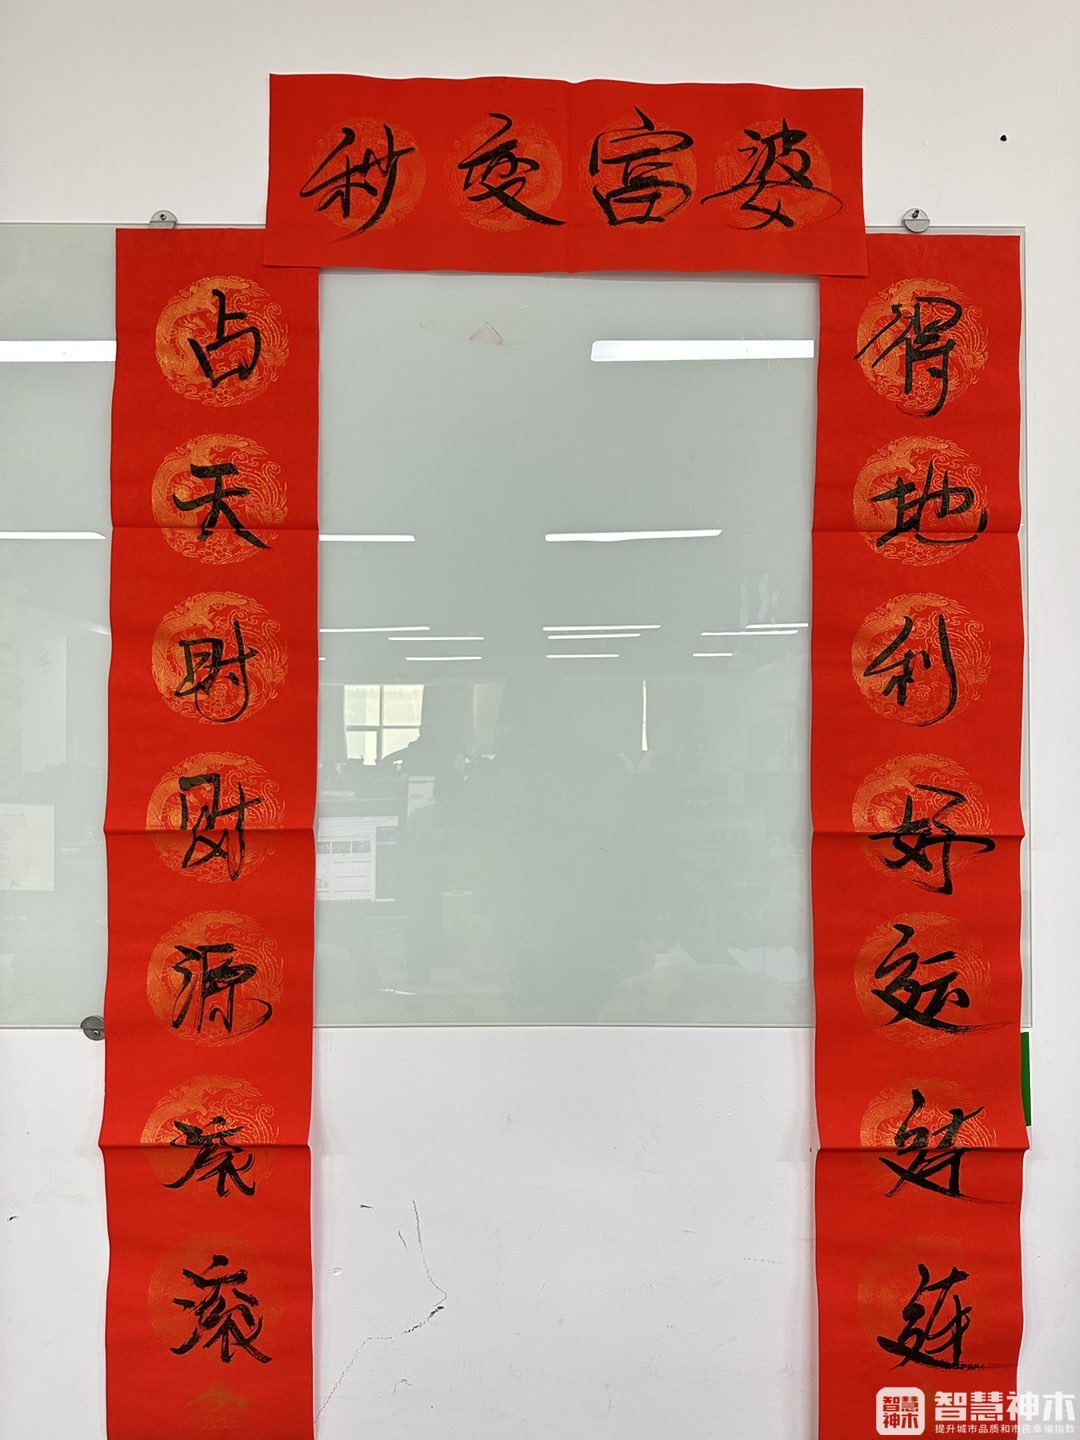 秒变富婆
占天时财源滚滚
得地利好运连连
智慧
神木
智慧神木
提升城市品质和市民幸福指数